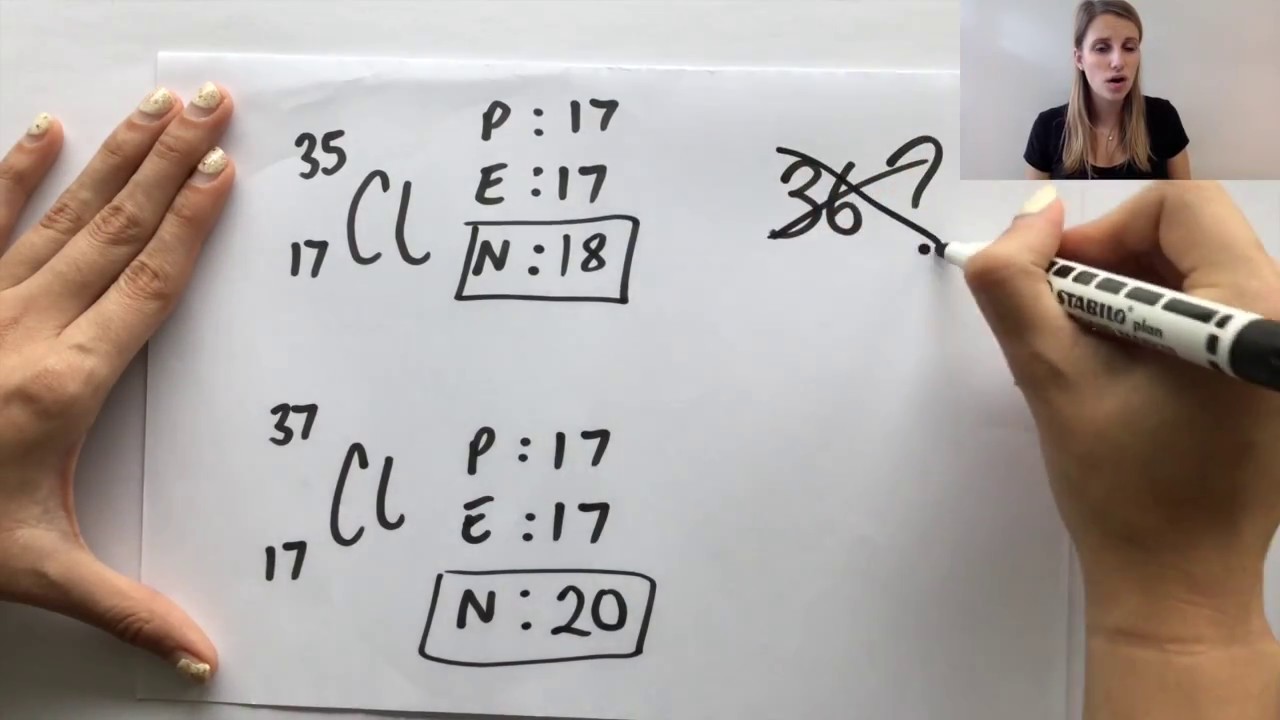 35
17
Cl
P : 17
E : 17
N : 18
36 ?
37
17
Cl
P : 17
E : 17
N : 20
STABILO® plan